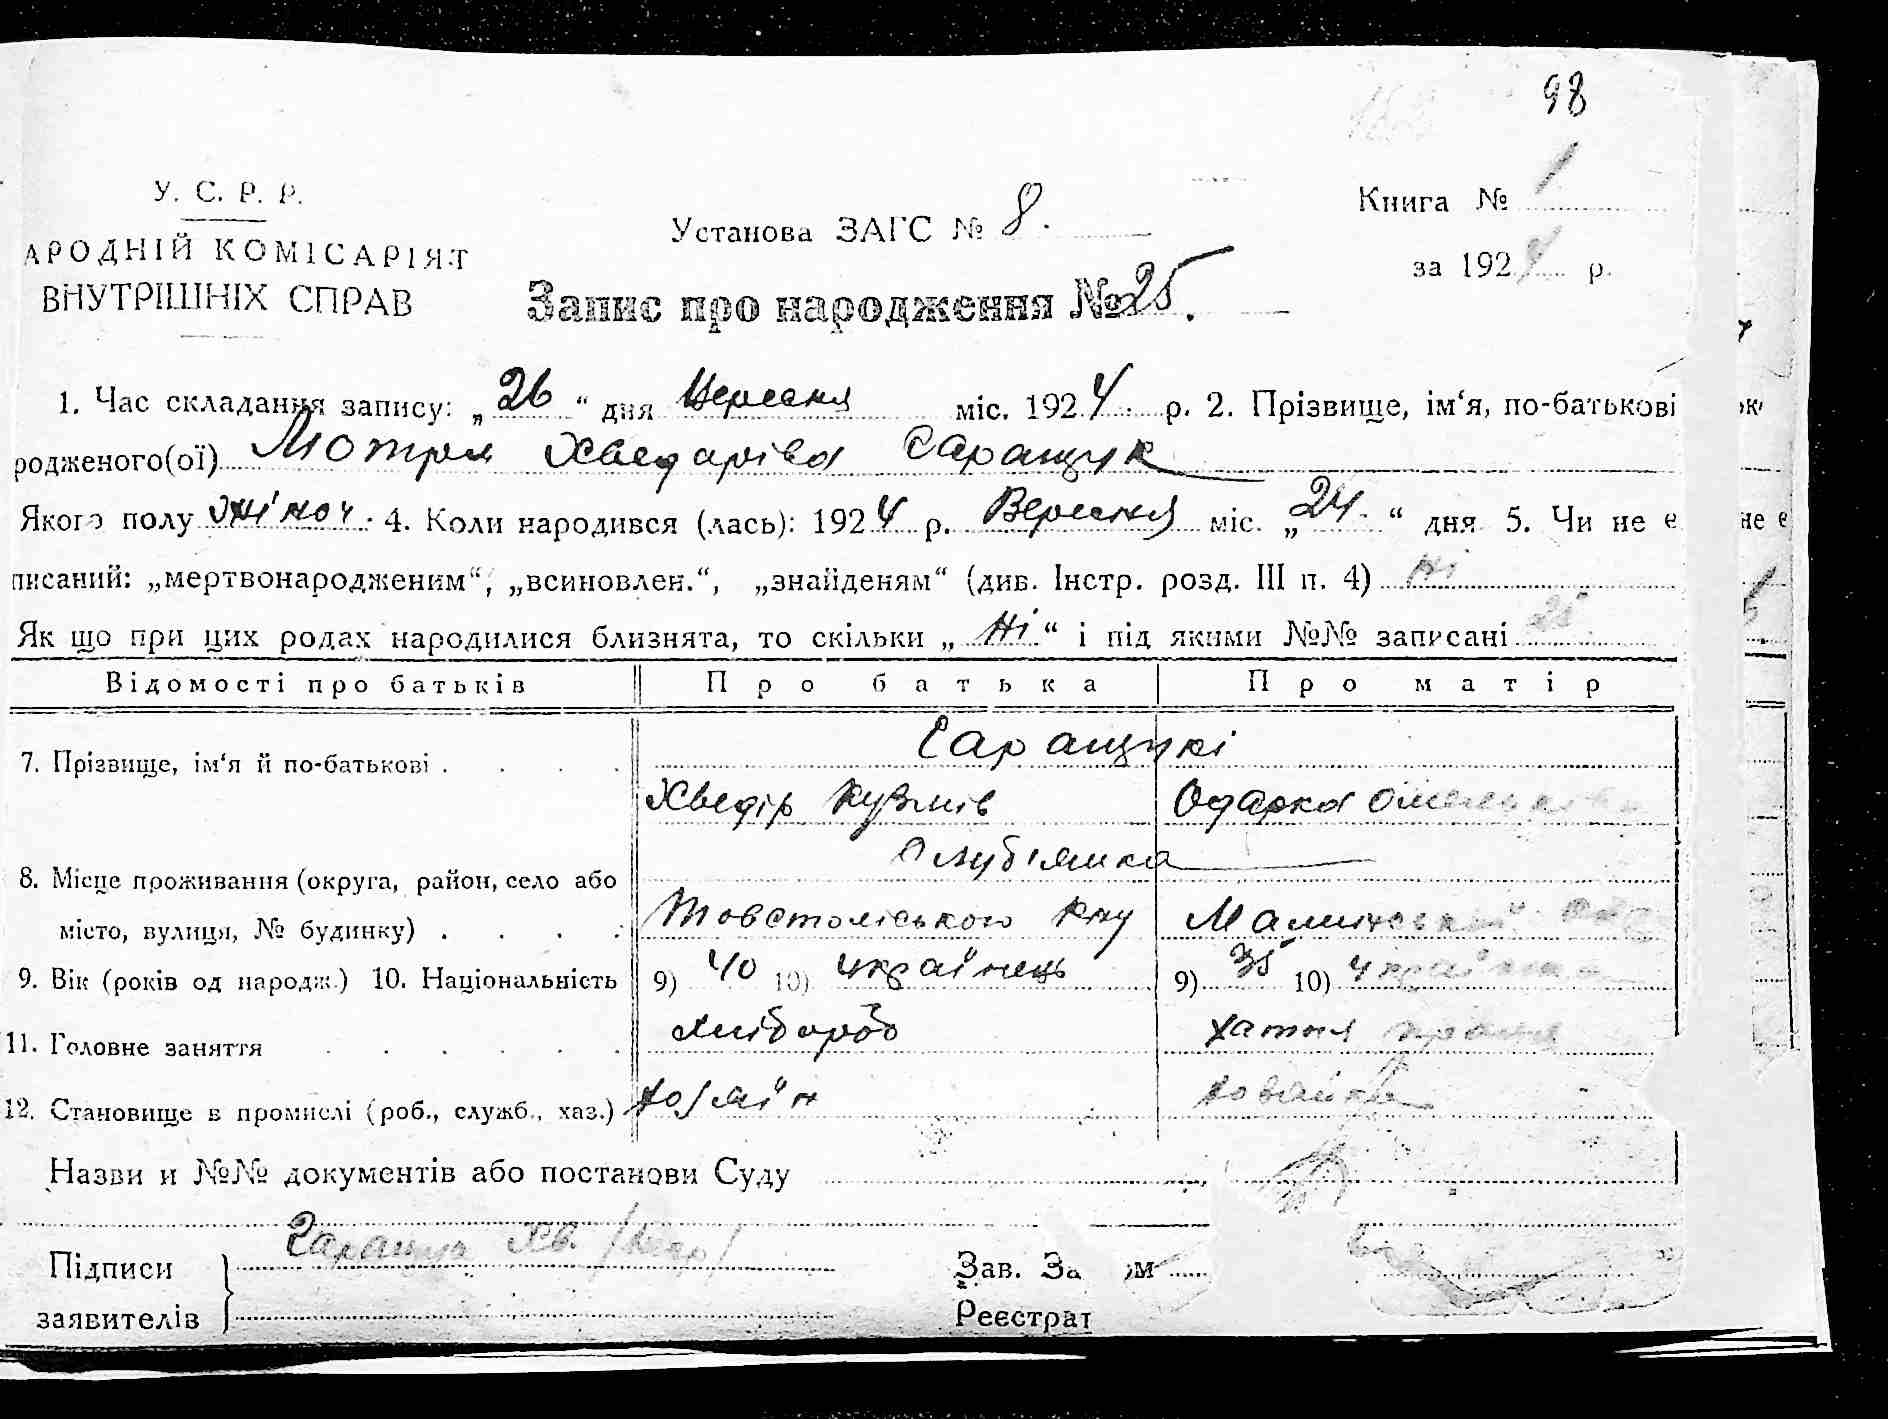 98
У. С. Р. Р.
АРОДНІЙ КОМІСАРІЯТ
ВНУТРІШНІХ СПРАВ
Установа ЗАГС № 8.
Книга № 1
за 1924 р.
Запис про народження № 25.
1. Час складання запису: „26“ дня Вересня міс. 1924 р. 2. Прізвище, ім‘я, по-батькові
родженого(ої) Мотря Хведарівa Саращук
Якого полу жіноч. 4. Коли народився (лась): 1924 р. Вересня міс. „24“ дня 5. Чи не є
писаний: „мертвонародженим“, „всиновлен.“, „знайденям“ (див. Інстр. розд. III п. 4) ні
Як що при цих родах народилися близнята, то скільки „Ні“ і під якими №№ записані 25
Відомості про батьків Про батька Про матір
7. Прізвище, ім‘я й по-батькові . . . . Саращукі
Хведір Кузмів Одарка
8. Місце проживання (округа, район, село або
місто, вулиця, № будинку) . . . . Товстоліського Малинський
9. Вік (років од народж.) 10. Національність 9) 40 10) українець 9) 35 10) українка
11. Головне заняття . . . . . . хлібороб хатня праця
12. Становище в промислі (роб., служб., хаз.) хозяїн хозяйка
Назви и №№ документів або постанови Суду
Підписи
заявителів
Саращук Хв.
Зав. За ом
Реєстрат